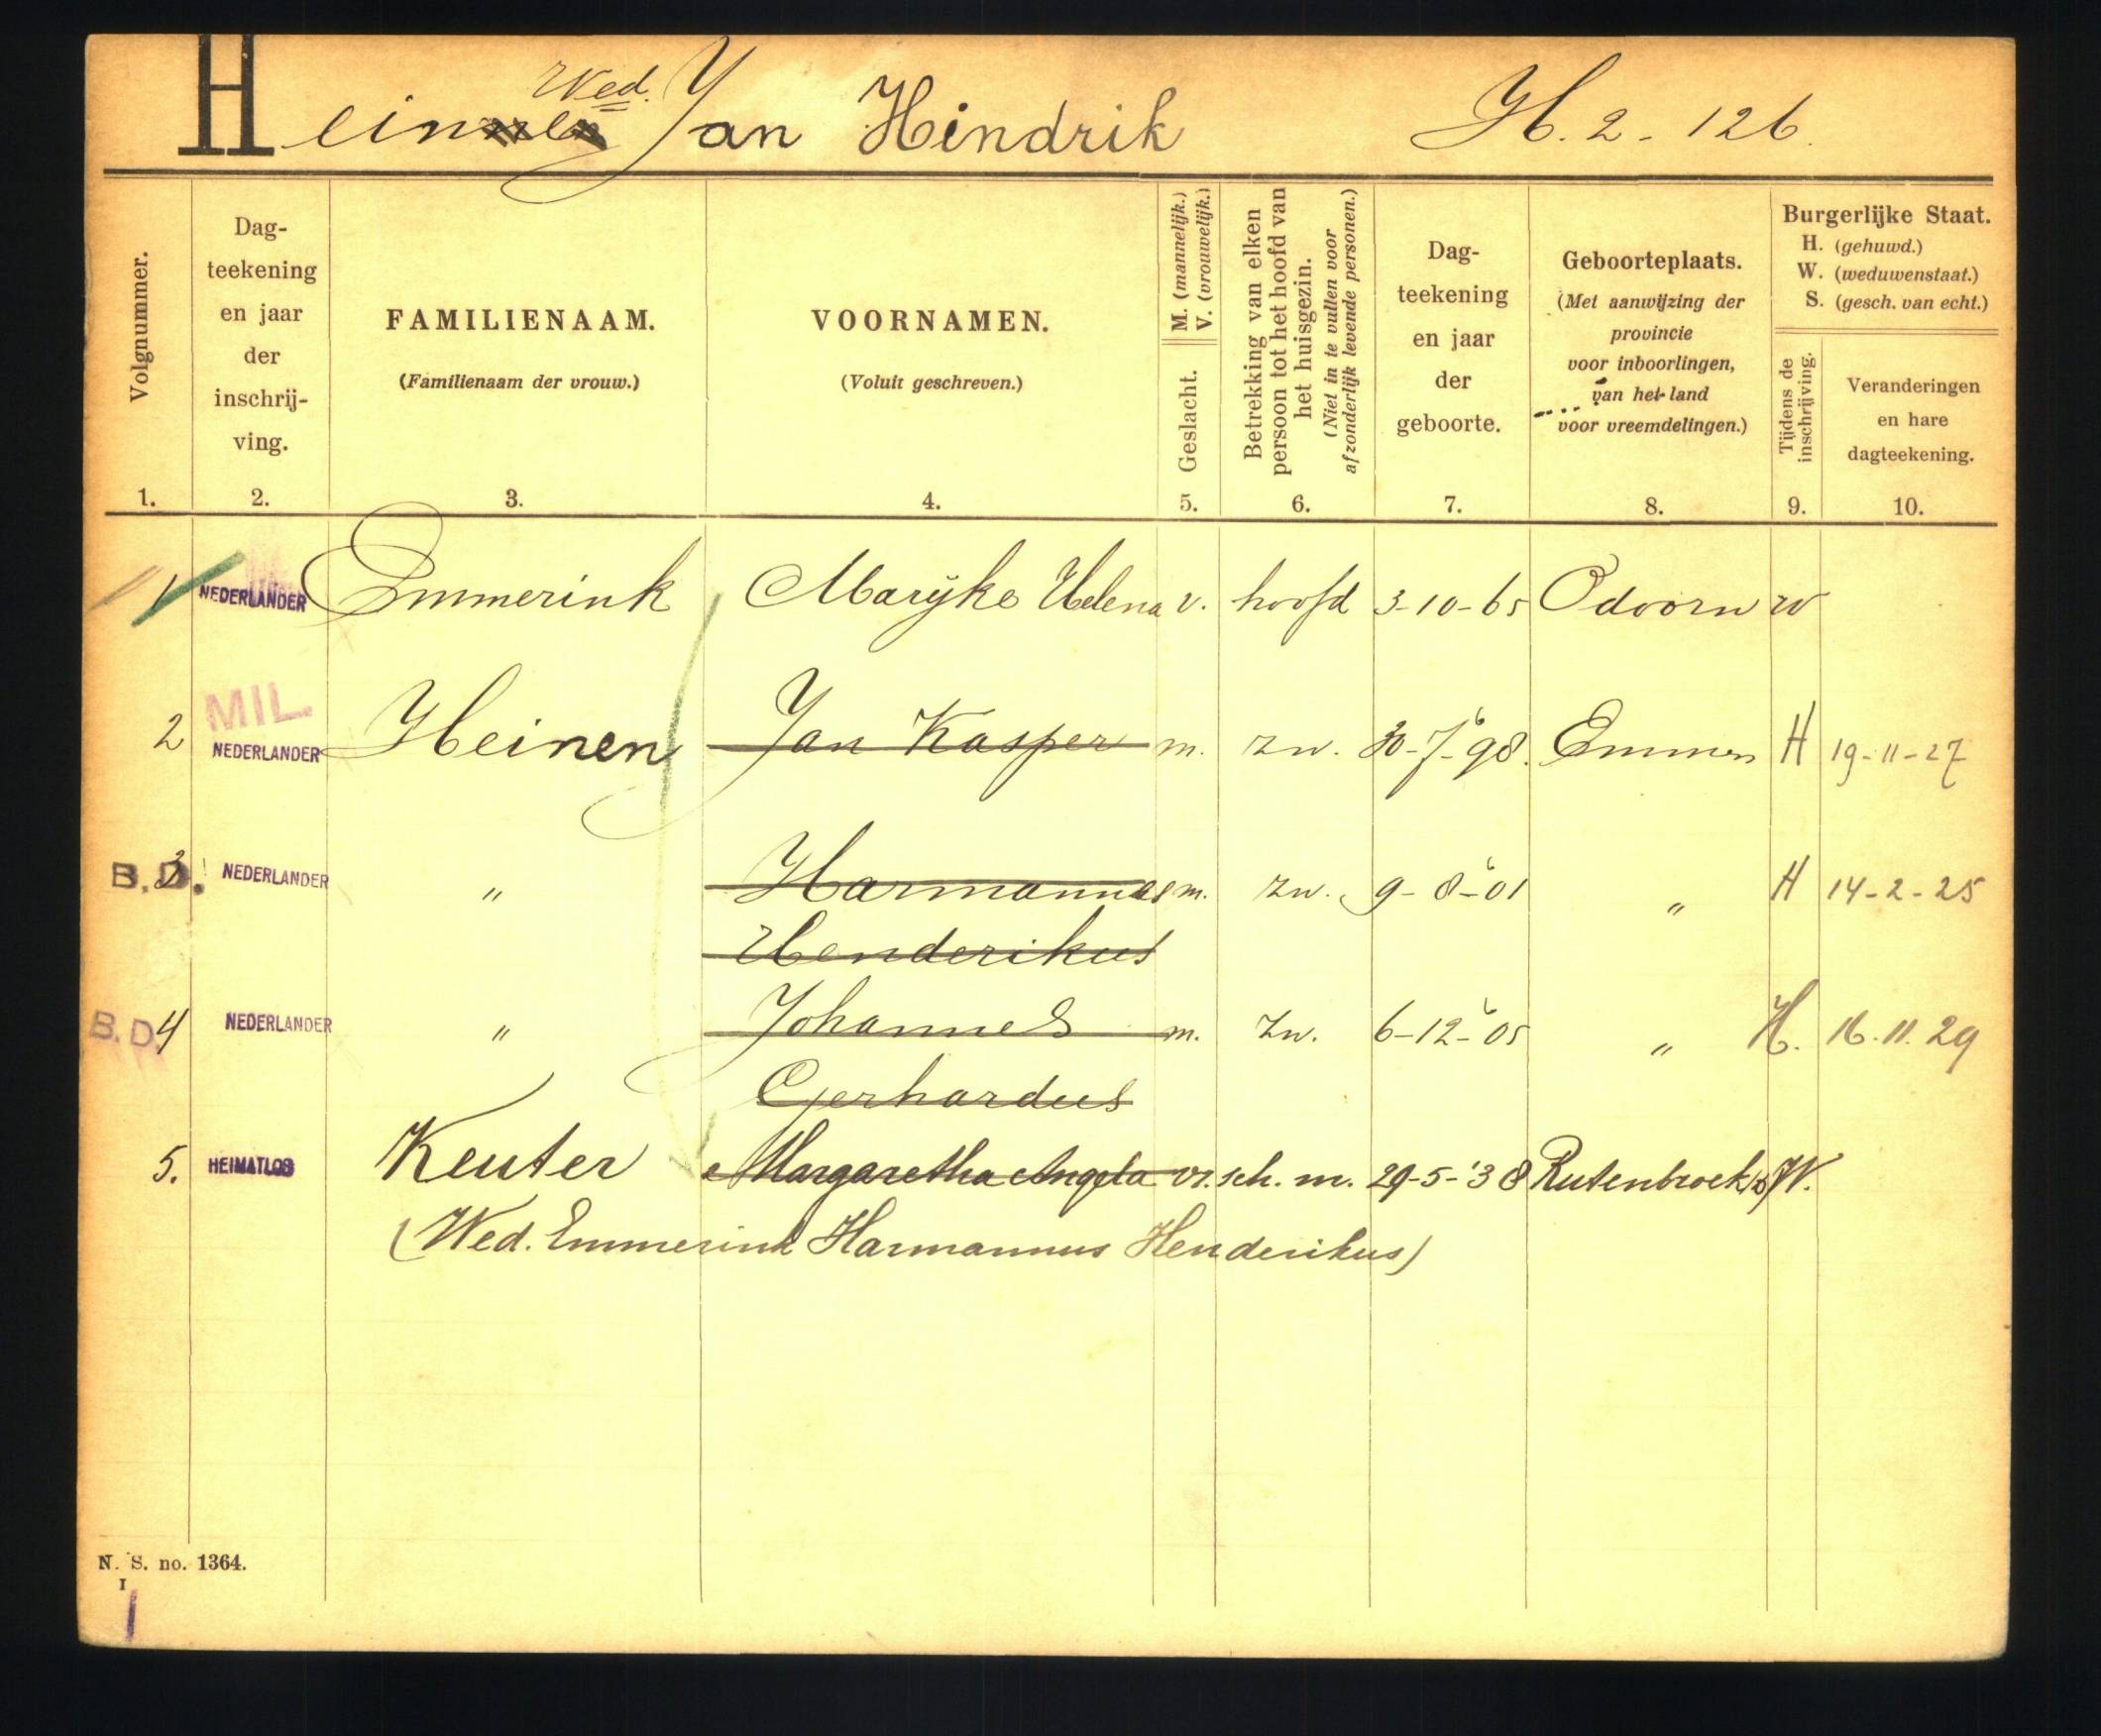 Wed.
Heinen Jan Hindrik H. 2 - 126.
Volgnummer.
1.
Dag-
teekening
en jaar
der
inschrij-
ving.
2.
FAMILIENAAM.
(Familienaam der vrouw.)
3.
VOORNAMEN.
(Voluit geschreven.)
4.
M. (mannelijk.)
V. (vrouwelijk.)
Geslacht.
5.
Betrekking van elken
persoon tot het hoofd van
het huisgezin.
(Niet in te vullen voor
afzonderlijk levende personen.)
6.
Dag-
teekening
en jaar
der
geboorte.
7.
Geboorteplaats.
(Met aanwijzing der
provincie
voor inboorlingen,
van het land
voor vreemdelingen.)
8.
Burgerlijke Staat.
H. (gehuwd.)
W. (weduwenstaat.)
S. (gesch. van echt.)
Tijdens de
inschrijving.
9.
Veranderingen
en hare
dagteekening.
10.
1 NEDERLANDER Emmerink Maryke Helena v. hoofd 3-10-65 Odoorn W
MIL.
2 NEDERLANDER Heinen Jan Kasper m. zn. 30-7-98. Emmen H 19-11-27
B.D. 3 NEDERLANDER " Harmannus m. zn. 9-8-01 " H 14-2-25
Henderikus
B.D. 4 NEDERLANDER " Johannes m. zn. 6-12-05 " H. 16.11.29
Gerhardus
5. HEIMATLOS Keuter Margaretha Angela vr. sch. m. 29-5-'38 Rutenbroek W.
(Wed. Emmerink Harmannus Henderikus)
N. S. no. 1364.
I